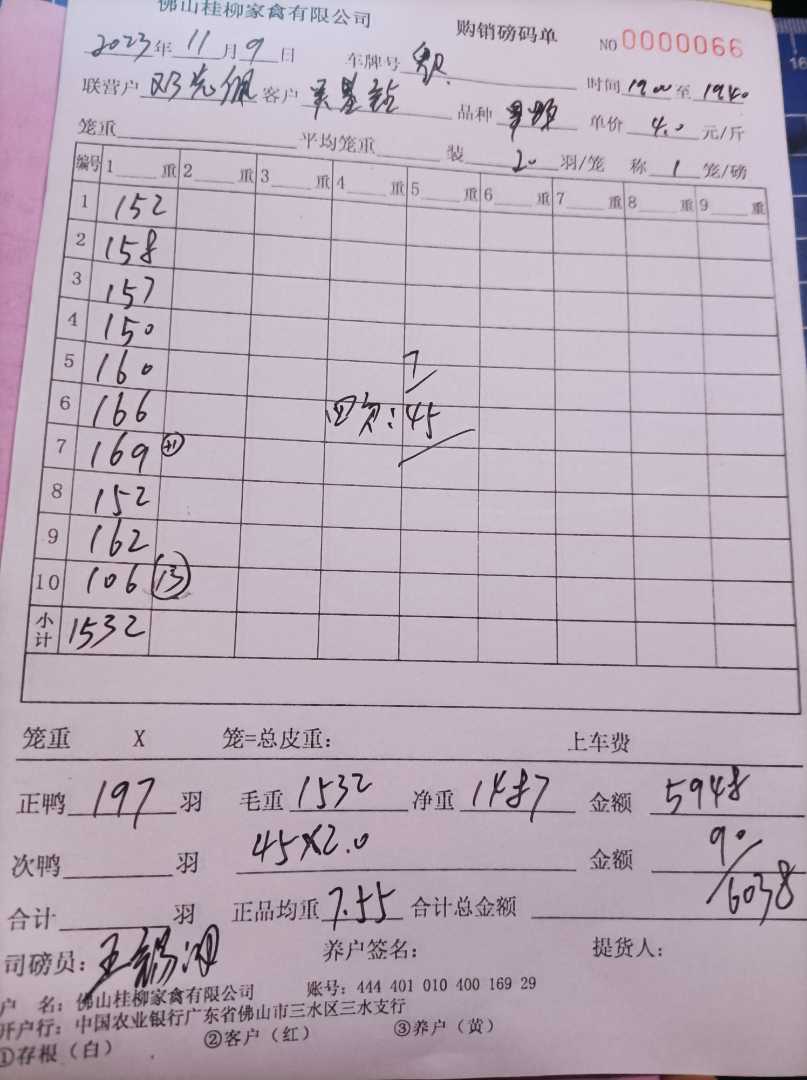 佛山桂柳家禽有限公司 购销磅码单 NO 0000066
2023年 11月 9日 车牌号
联营户 邓志佩 客户 吴基站 品种 单价 4.0 元/斤 时间 19 00 至 19 40
笼重 平均笼重 装 20 羽/笼 称 1 笼/磅
编号 1 重 2 重 3 重 4 重 5 重 6 重 7 重 8 重 9 重
1 152
2 158
3 157
4 150
5 160 7
6 166 次:45
7 169 +1
8 152
9 162
10 106 13
小计 1532
笼重 X 笼=总皮重: 上车费
正鸭 197 羽 毛重 1532 净重 1487 金额 5948
次鸭 羽 45X2.0 金额 90
合计 羽 正品均重 7.55 合计总金额 6038
司磅员: 王 养户签名: 提货人:
户 名: 佛山桂柳家禽有限公司 账号: 444 401 010 400 169 29
开户行: 中国农业银行广东省佛山市三水区三水支行
①存根(白) ②客户(红) ③养户(黄)